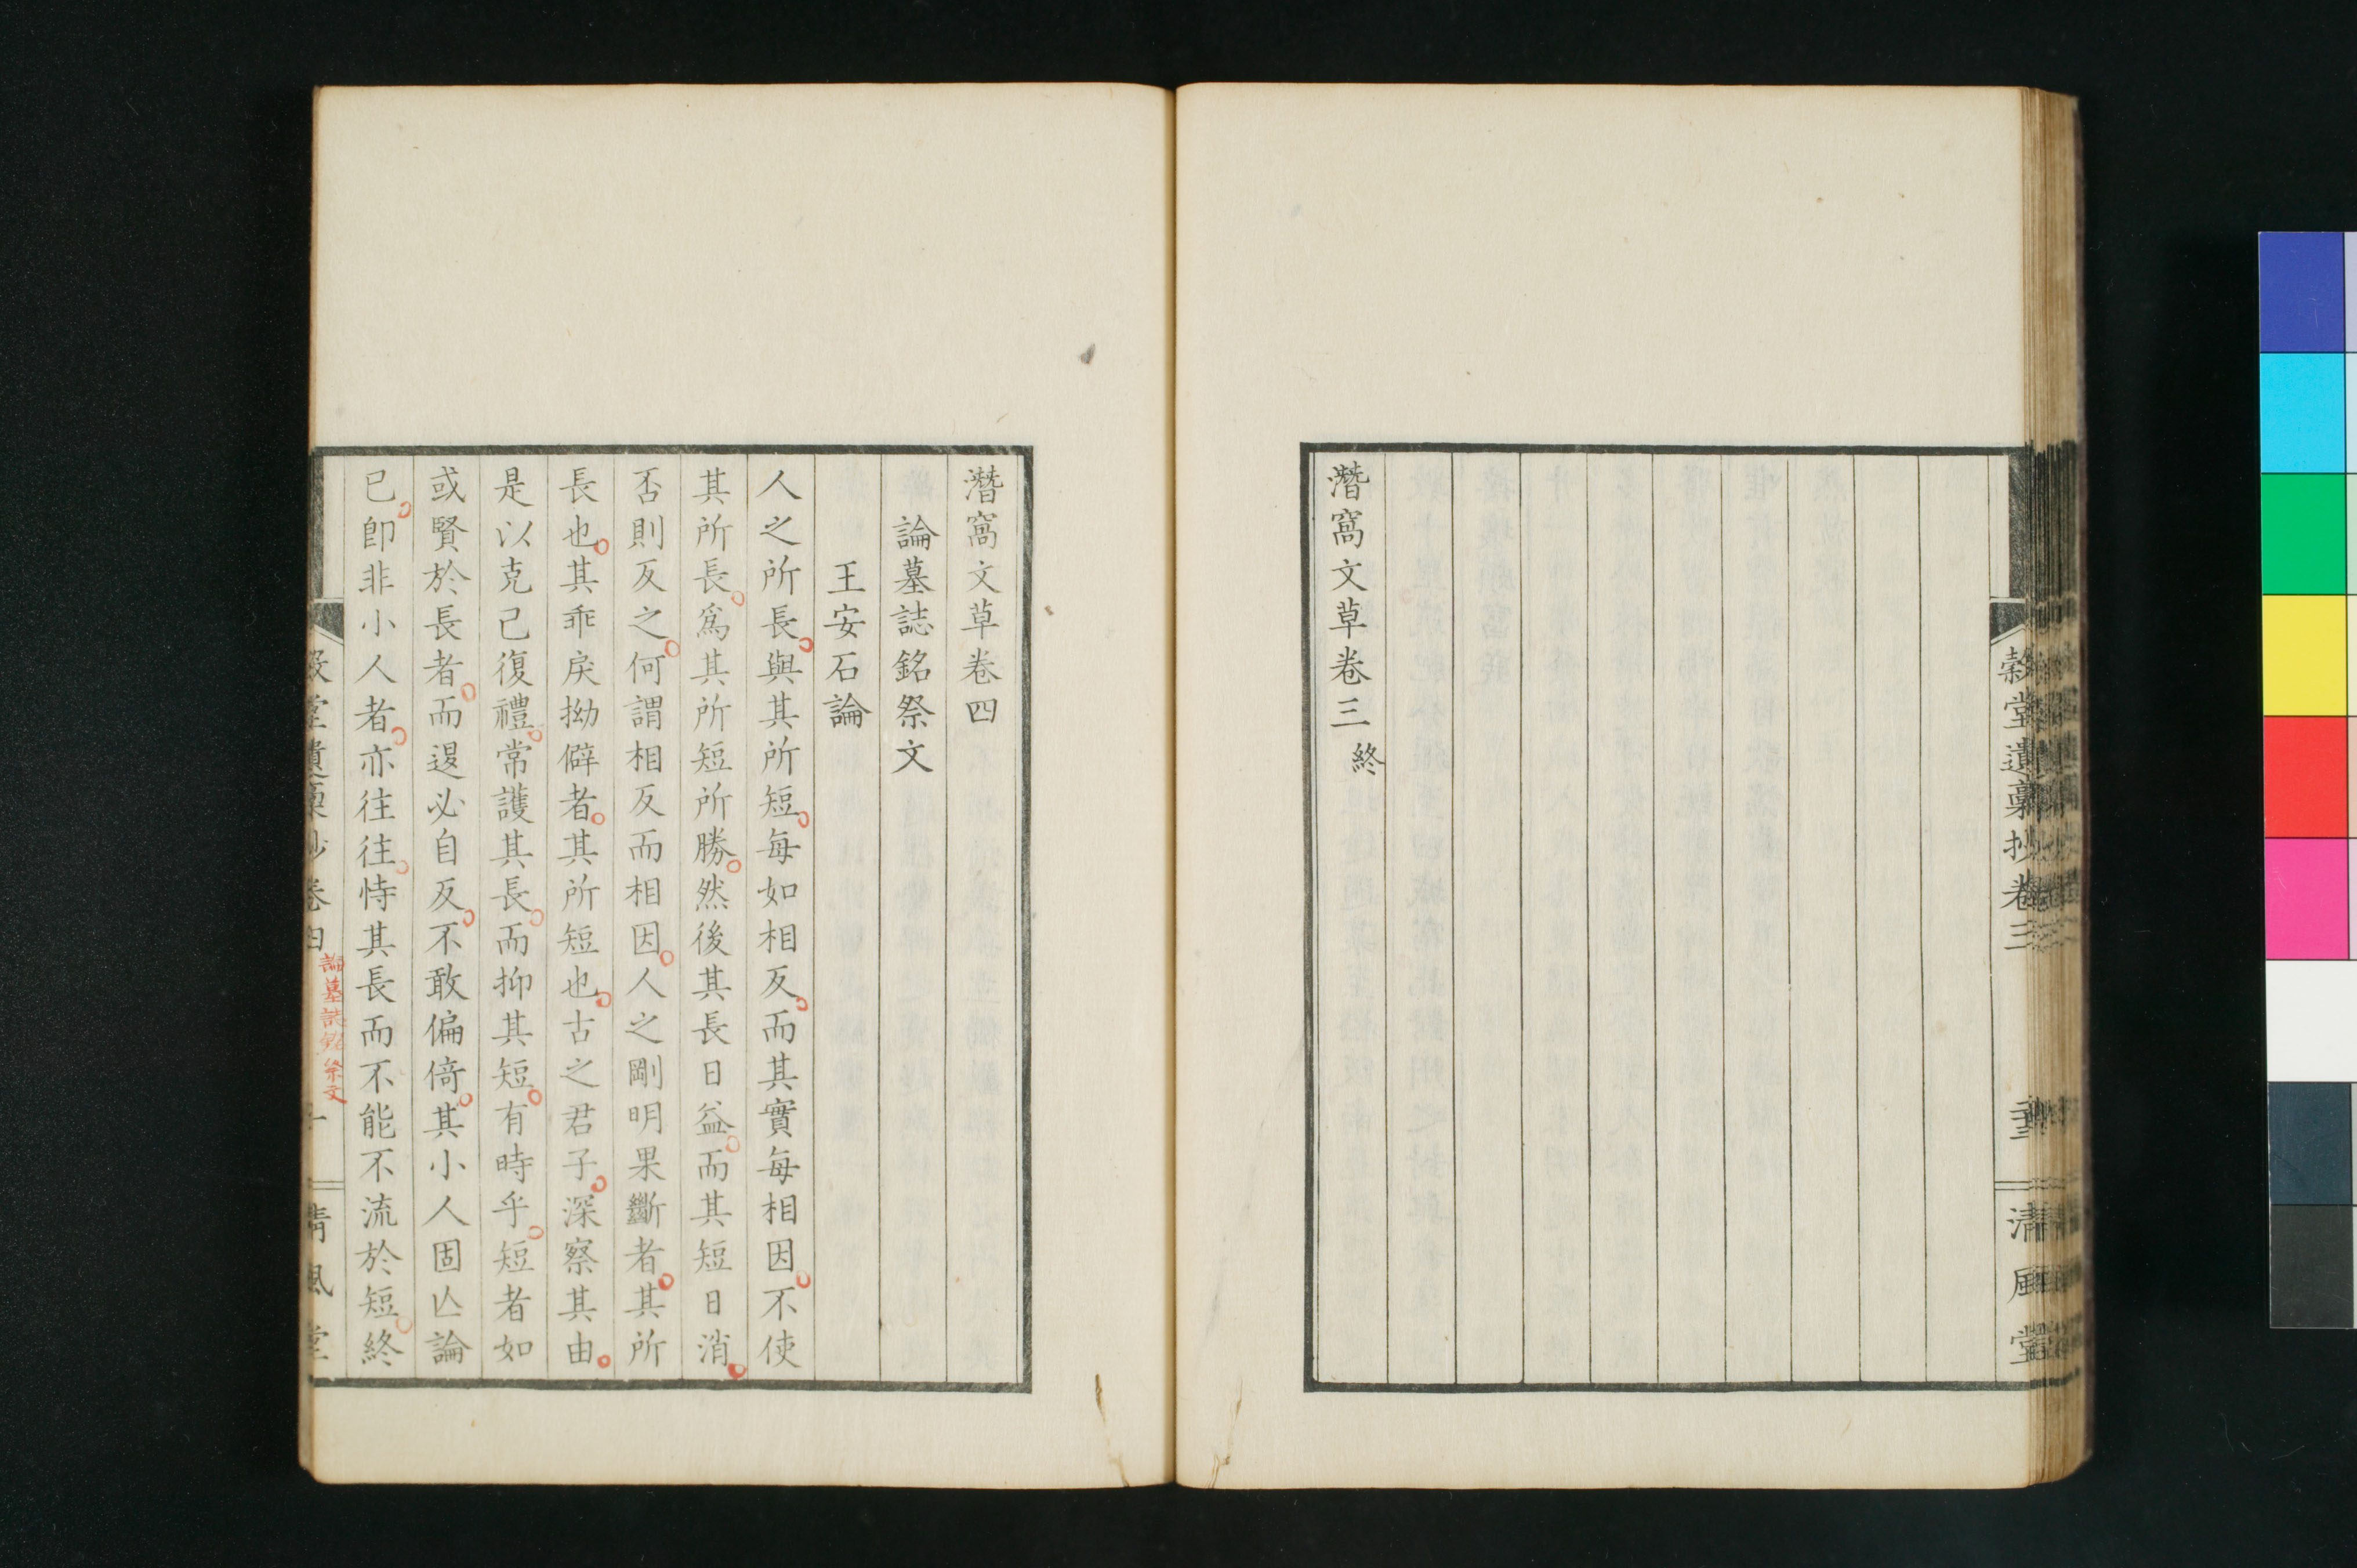 潛窩文草卷三終
穀堂遺稾抄卷三
清風堂
潛窩文草卷四
論墓誌銘祭文
王安石論
人之所長與其所短每如相反而其實每相因不使
其所長爲其所短所勝然後其長日益而其短日消
否則反之何謂相反而相因人之剛明果斷者其所
長也其乖戾拗僻者其所短也古之君子深察其由
是以克己復禮常護其長而抑其短有時乎短者如
或賢於長者而退必自反不敢偏倚其小人固亾論
已卽非小人者亦往往恃其長而不能不流於短終
論墓誌銘祭文